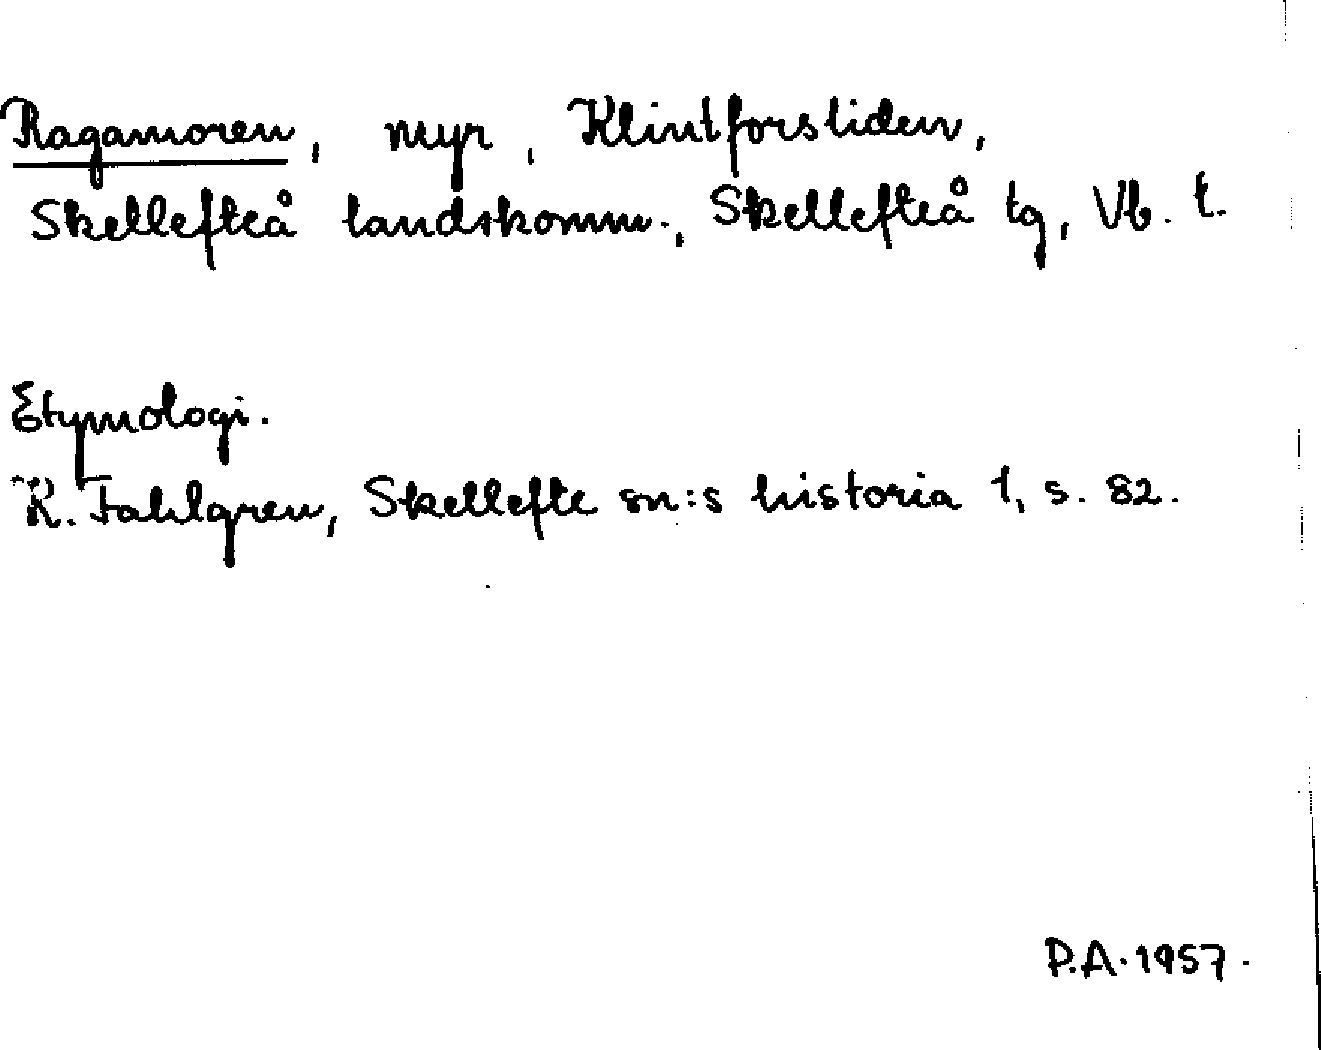 Ragamoren, myr, Klintforsliden,
Skellefteå landskomm., Skellefteå tg, Vb. l.
Etymologi.
K. Fahlgren, Skellefte sn:s historia 1, s. 82.
P.A. 1957.